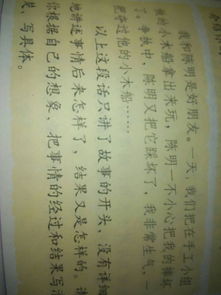 我和陈明是好朋友。一天，我们把在手工小组
的小木船拿出来玩，陈明一不小心把我的摔坏
了。争执中，陈明又把它踩坏了。我非常生气，一
把夺过他的小木船……
以上这段话只讲了故事的开头，没有详细
地讲述事情后来怎样了，结果又是怎样的。请
你根据自己的想象，把事情的经过和结果写
写具体。